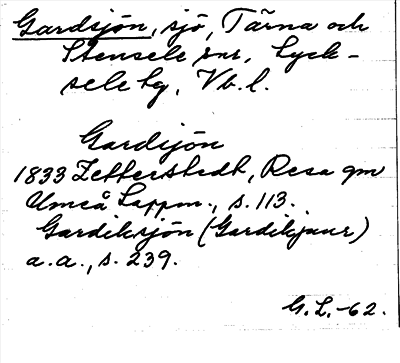 Gardsjön, sjö, Tärna och
Stensele snr, Lyck-
sele lg, Vb. l.
Gardsjön
1833 Zetterstedt, Resa gm
Umeå Lappm., s. 113.
Gardiksjön (Gardikjaur)
a.a., s. 239.
G.L.-62.